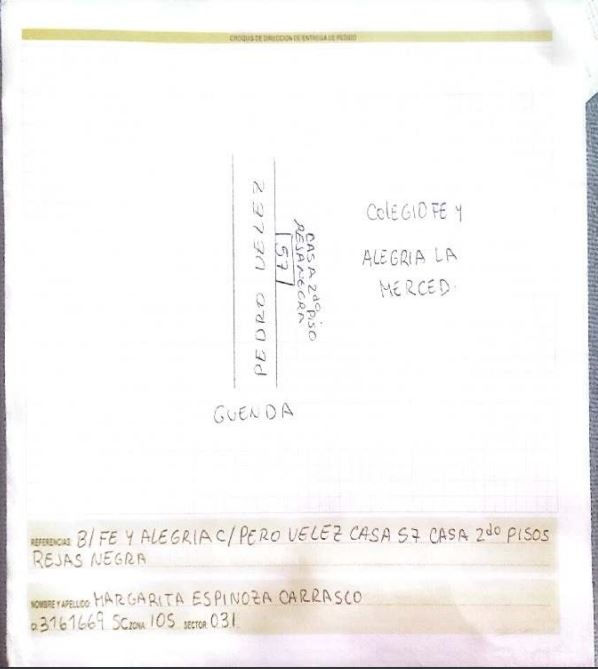 CROQUIS DE DIRECCION DE ENTREGA DE PEDIDO
PEDRO VELEZ
57
CASA 2do PISO
REJA NEGRA
COLEGIO FE Y
ALEGRIA LA
MERCED.
GUENDA
REFERENCIAS: B/FE Y ALEGRIA C/PERO VELEZ CASA 57 CASA 2do PISOS
REJAS NEGRA
NOMBRE Y APELLIDO: MARGARITA ESPINOZA CARRASCO
CI: 3161669 SC ZONA: 105 SECTOR: 031